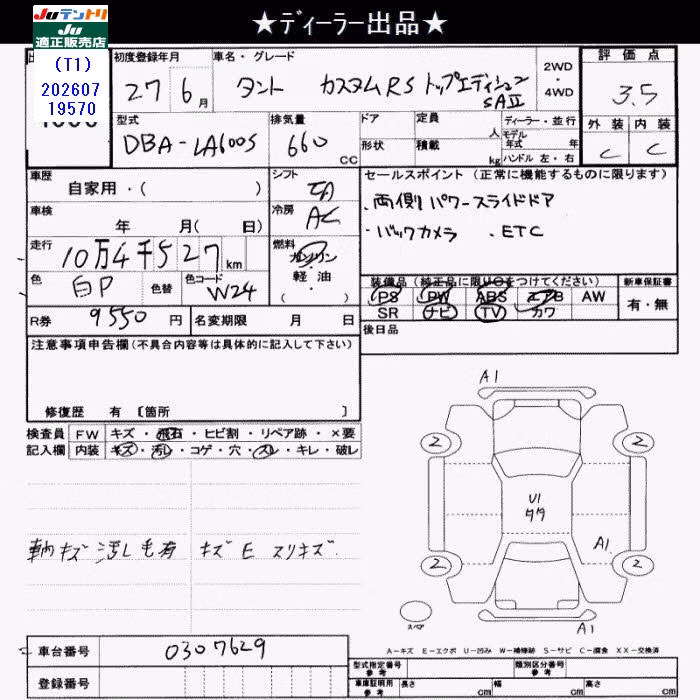 ★ディーラー出品★
Juテントリ
Ju
適正販売店
(T1)
202607
19570
初度登録年月
27 6 月
車名・グレード
タント カスタムRS トップエディション
SAⅡ
2WD
・
4WD
評価点
3.5
外装 内装
C C
型式
DBA-LA600S
排気量
660
CC
ドア
形状
定員
人
積載
kg
ディーラー・並行
モデル
年式 年
ハンドル 左・右
車歴
自家用・( )
シフト
IA
車検
年 月( 日)
冷房
AC
走行
10万4千527
km
燃料
ガソリン
軽油
( )
色
白P
色替
色コード
W24
R券 9550 円
名変期限 月 日
セールスポイント (正常に機能するものに限ります)
・両側パワースライドドア
・バックカメラ ・ETC
装備品(純正品に限り○をつけてください)
新車保証書
PS PW ABS エアB AW
SR ナビ TV カワ
有・無
後日品
注意事項申告欄(不具合内容等は具体的に記入して下さい)
修復歴 有 〔箇所 〕
検査員
記入欄
FW キズ・飛石・ヒビ割・リペア跡・×要
内装 キズ・汚レ・コゲ・穴・スレ・キレ・破レ
車内キズ 汚レ 毛有 キズ E スリキズ
A1
2 2
U1
タタ
A1
2 2
スペア
A1
A-キズ E-エクボ U-凹み W-補修跡 S-サビ C-腐食 XX-交換済
車台番号 0307629
登録番号
型式指定番号
参考
類別区分番号
参考
車庫証明用
参考
長さ cm 幅 cm 高さ cm